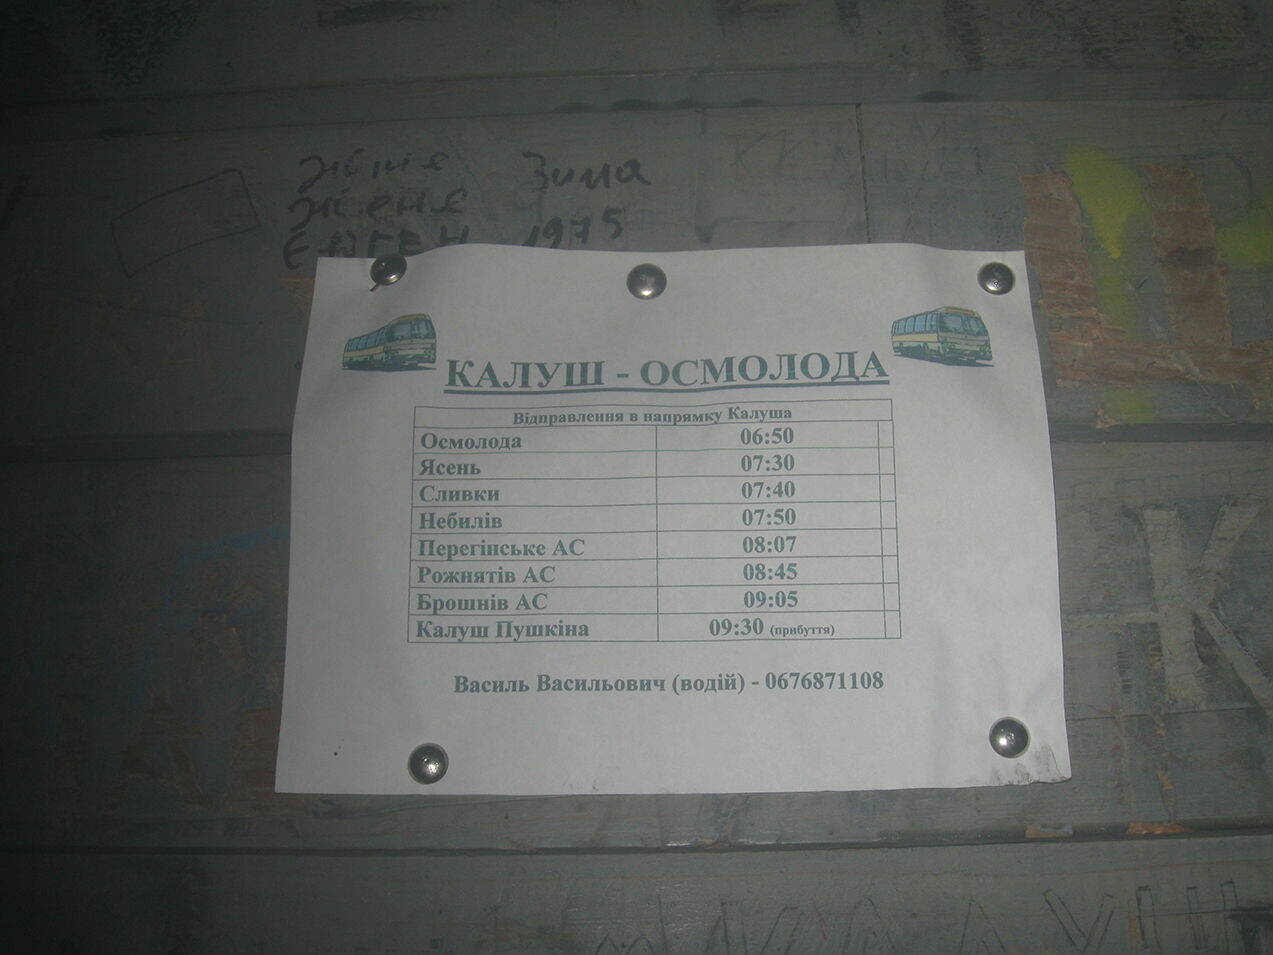 Зима
Женя
ЄВГЕН 1975
КАЛУШ - ОСМОЛОДА
Відправлення в напрямку Калуша
Осмолода 06:50
Ясень 07:30
Сливки 07:40
Небилів 07:50
Перегінське АС 08:07
Рожнятів АС 08:45
Брошнів АС 09:05
Калуш Пушкіна 09:30 (прибуття)
Василь Васильович (водій) - 0676871108